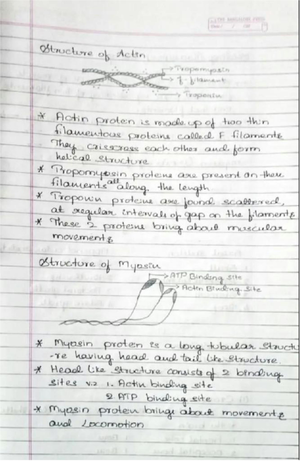 Structure of Actin
Tropomyosin
F-filament
Troponin
* Actin protein is made up of two thin
filamentous proteins called F filaments
They crisscross each other and form
helical structure
* Tropomyosin proteins are present on these
filaments all along the length
* Troponin proteins are found scattered,
at regular intervals of gap on the filaments
* These 2 proteins bring about muscular
movements
Structure of Myosin
ATP Binding site
Actin Binding site
* Myosin protein is a long tubular struct-
-re having head and tail like structure
* Head like structure consists of 2 binding
sites viz 1. Actin binding site
2. ATP binding site
* Myosin protein brings about movements
and Locomotion